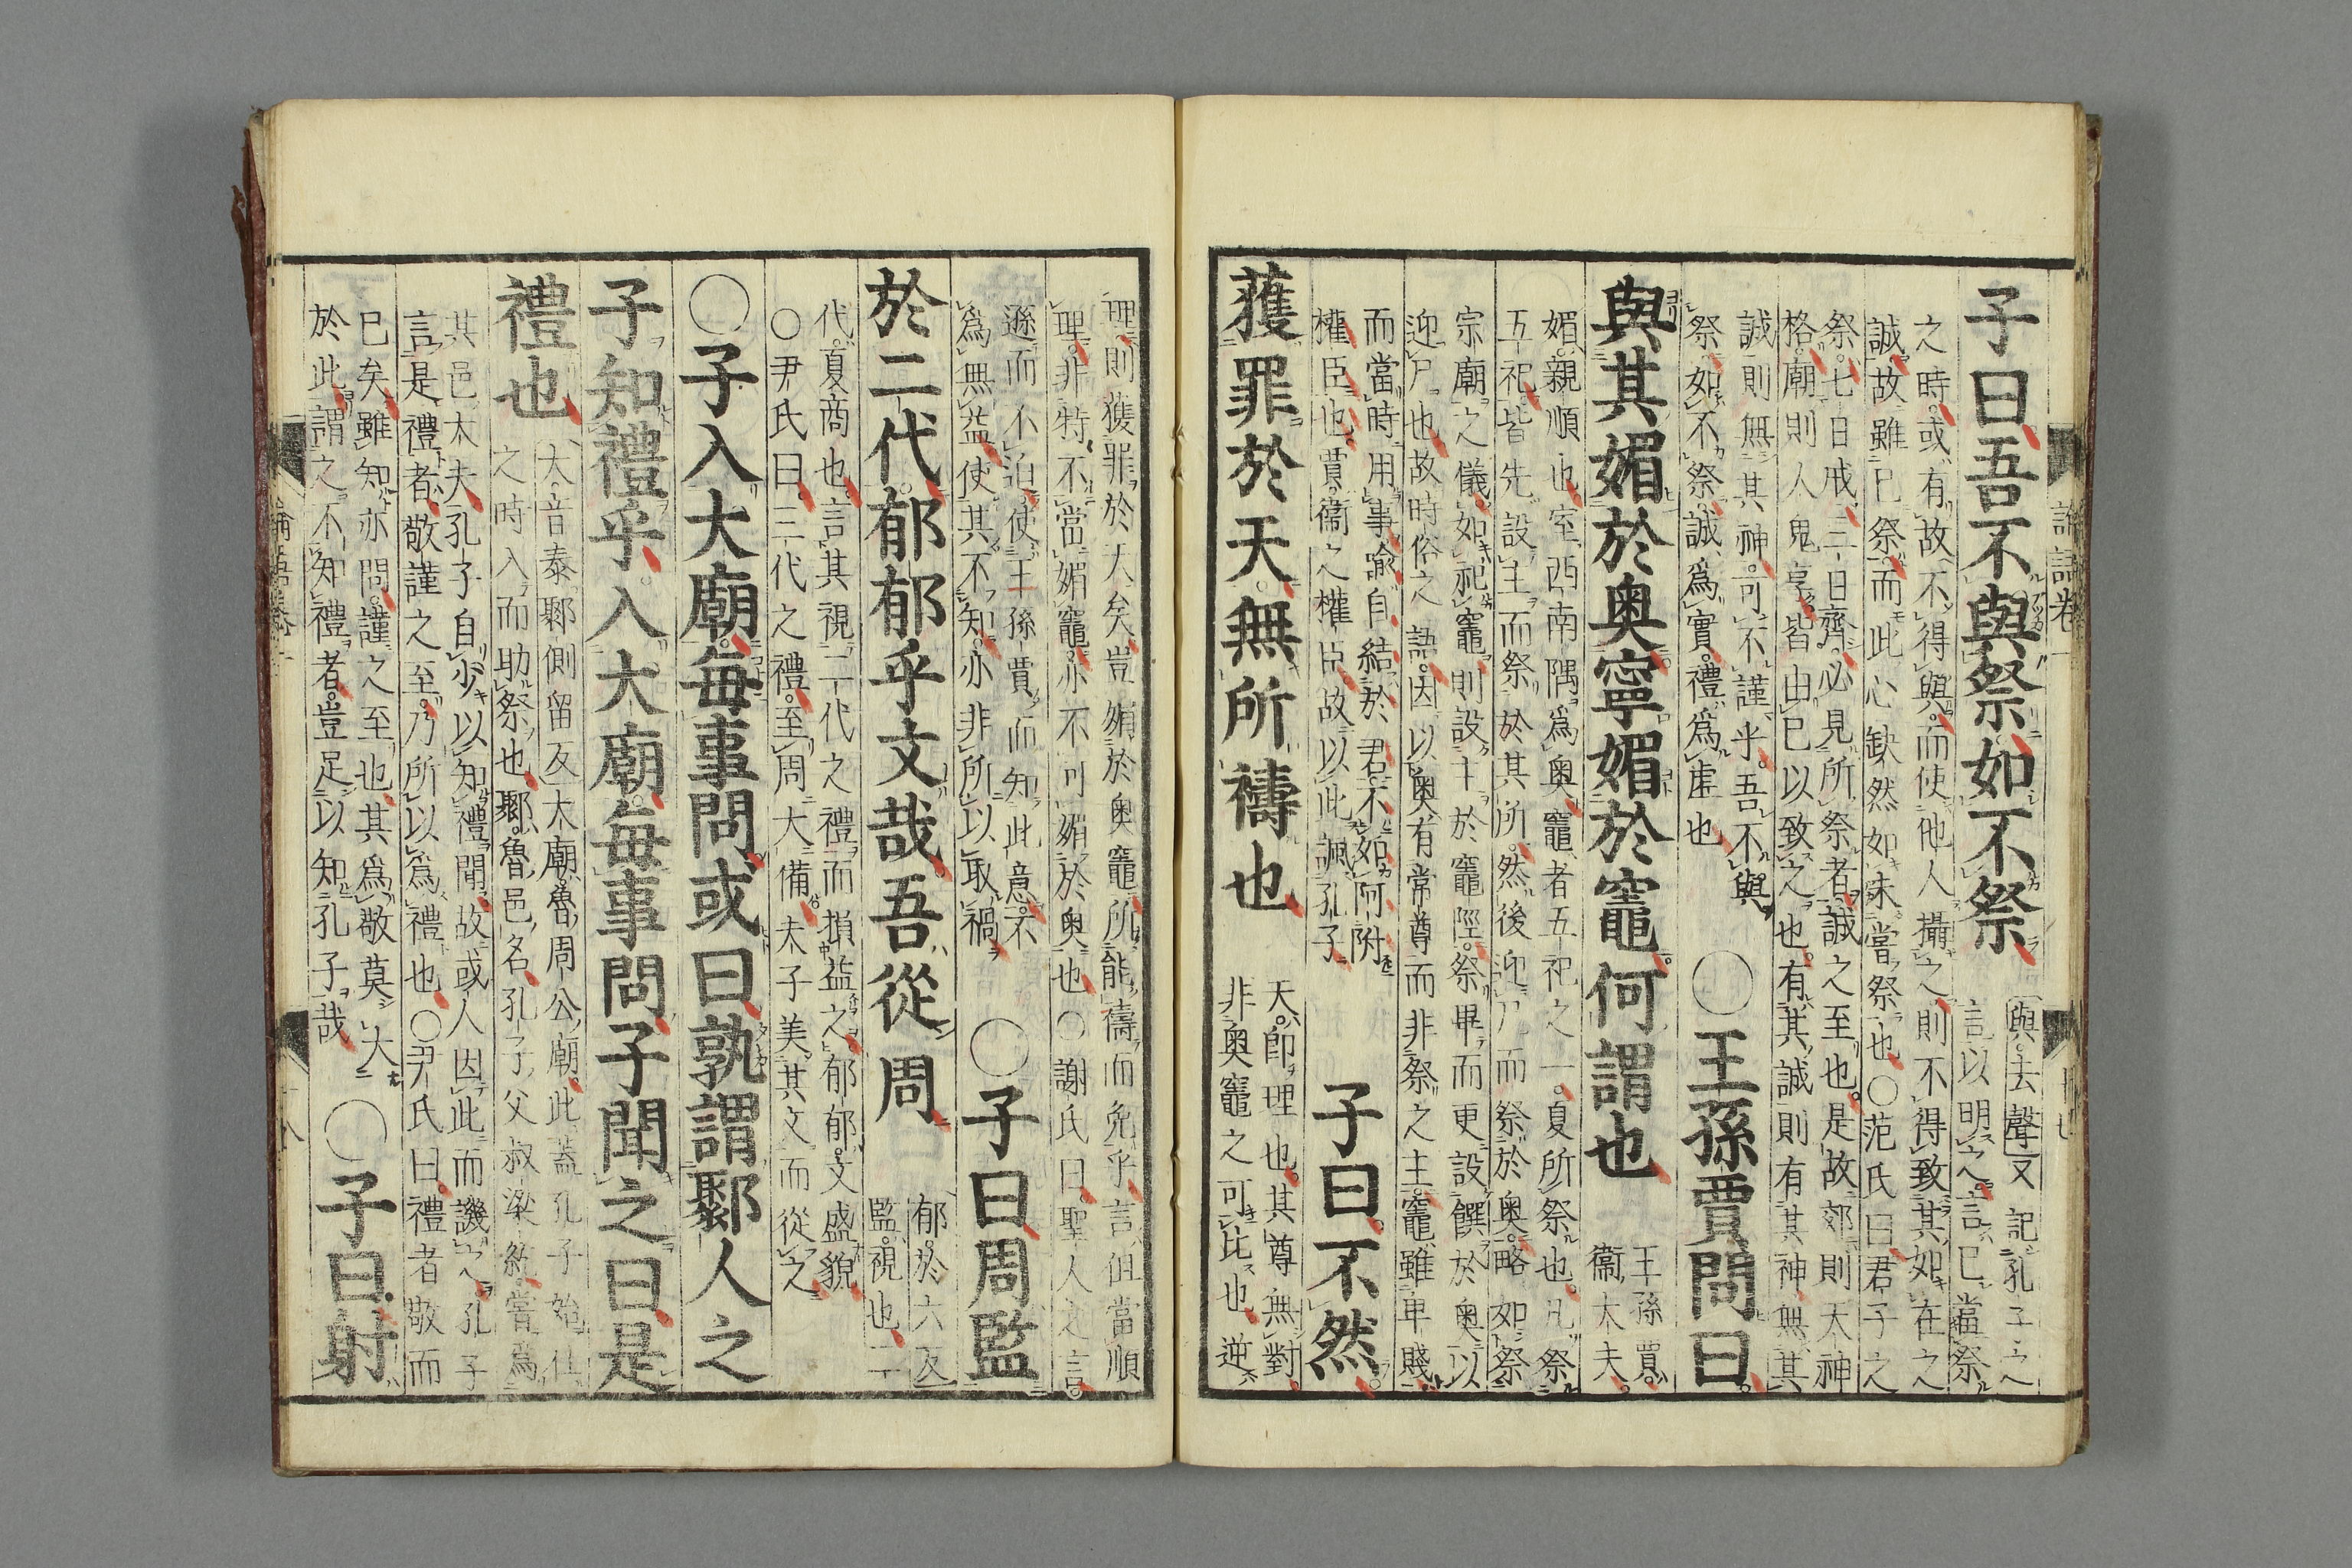 論語卷二
十七
子曰吾不與祭如不祭
與去聲又記孔子之
言以明之言己當祭
之時或有故不得與而使他人攝之則不得致其如在之
誠故雖已祭而此心缺然如未嘗祭也○范氏曰君子之
祭七日戒三日齊必見所祭者誠之至也是故郊則天神
格廟則人鬼享皆由己以致之也有其誠則有其神無其
誠則無其神可不謹乎吾不與
祭如不祭誠爲實禮爲虛也
○王孫賈問曰
王孫賈
衞大夫
與其媚於奧寧媚於竈何謂也
媚親順也室西南隅爲奧竈者五祀之一夏所祭也凡祭
五祀皆先設主而祭於其所然後迎尸而祭於奧略如祭
宗廟之儀如祀竈則設主於竈陘祭畢而更設饌於奧以
迎尸也故時俗之語因以奧有常尊而非祭之主竈雖卑賤
而當時用事喩自結於君不如阿附
權臣也賈衞之權臣故以此諷孔子
子曰不然
獲罪於天無所禱也
天卽理也其尊無對
非奧竈之可比也逆
理則獲罪於天矣豈媚於奧竈所能禱而免乎言但當順
理非特不當媚竈亦不可媚於奧也○謝氏曰聖人之言
遜而不迫使王孫賈而知此意不
爲無益使其不知亦非所以取禍
○子曰周監
於二代郁郁乎文哉吾從周
郁於六反
監視也二
代夏商也言其視二代之禮而損益之郁郁文盛貌
○尹氏曰三代之禮至周大備夫子美其文而從之
○子入大廟每事問或曰孰謂鄹人之
子知禮乎入大廟每事問子聞之曰是
禮也
大音泰鄹側留反大廟魯周公廟此蓋孔子始仕
之時入而助祭也鄹魯邑名孔子父叔梁紇嘗爲
其邑大夫孔子自少以知禮聞故或人因此而譏之孔子
言是禮者敬謹之至乃所以爲禮也○尹氏曰禮者敬而
已矣雖知亦問謹之至也其爲敬莫大
於此謂之不知禮者豈足以知孔子哉
○子曰射
論語卷二
十八